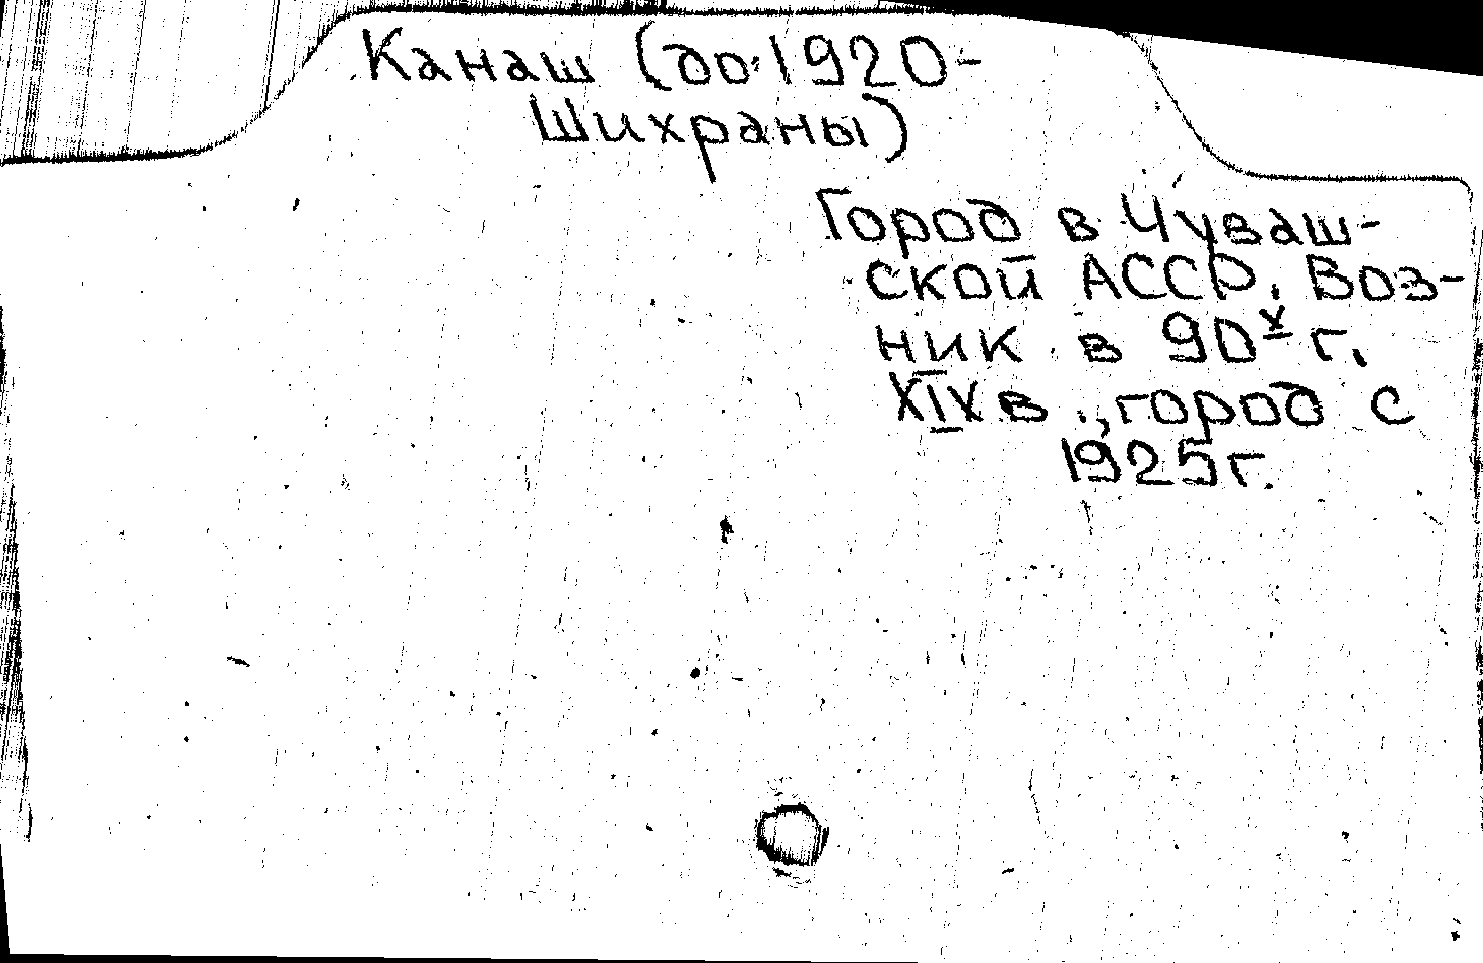 Канаш (до 1920-
Шихраны)
Город в Чуваш-
ской АССР. Воз-
ник в 90х г.
XIX в., город с
1925г.